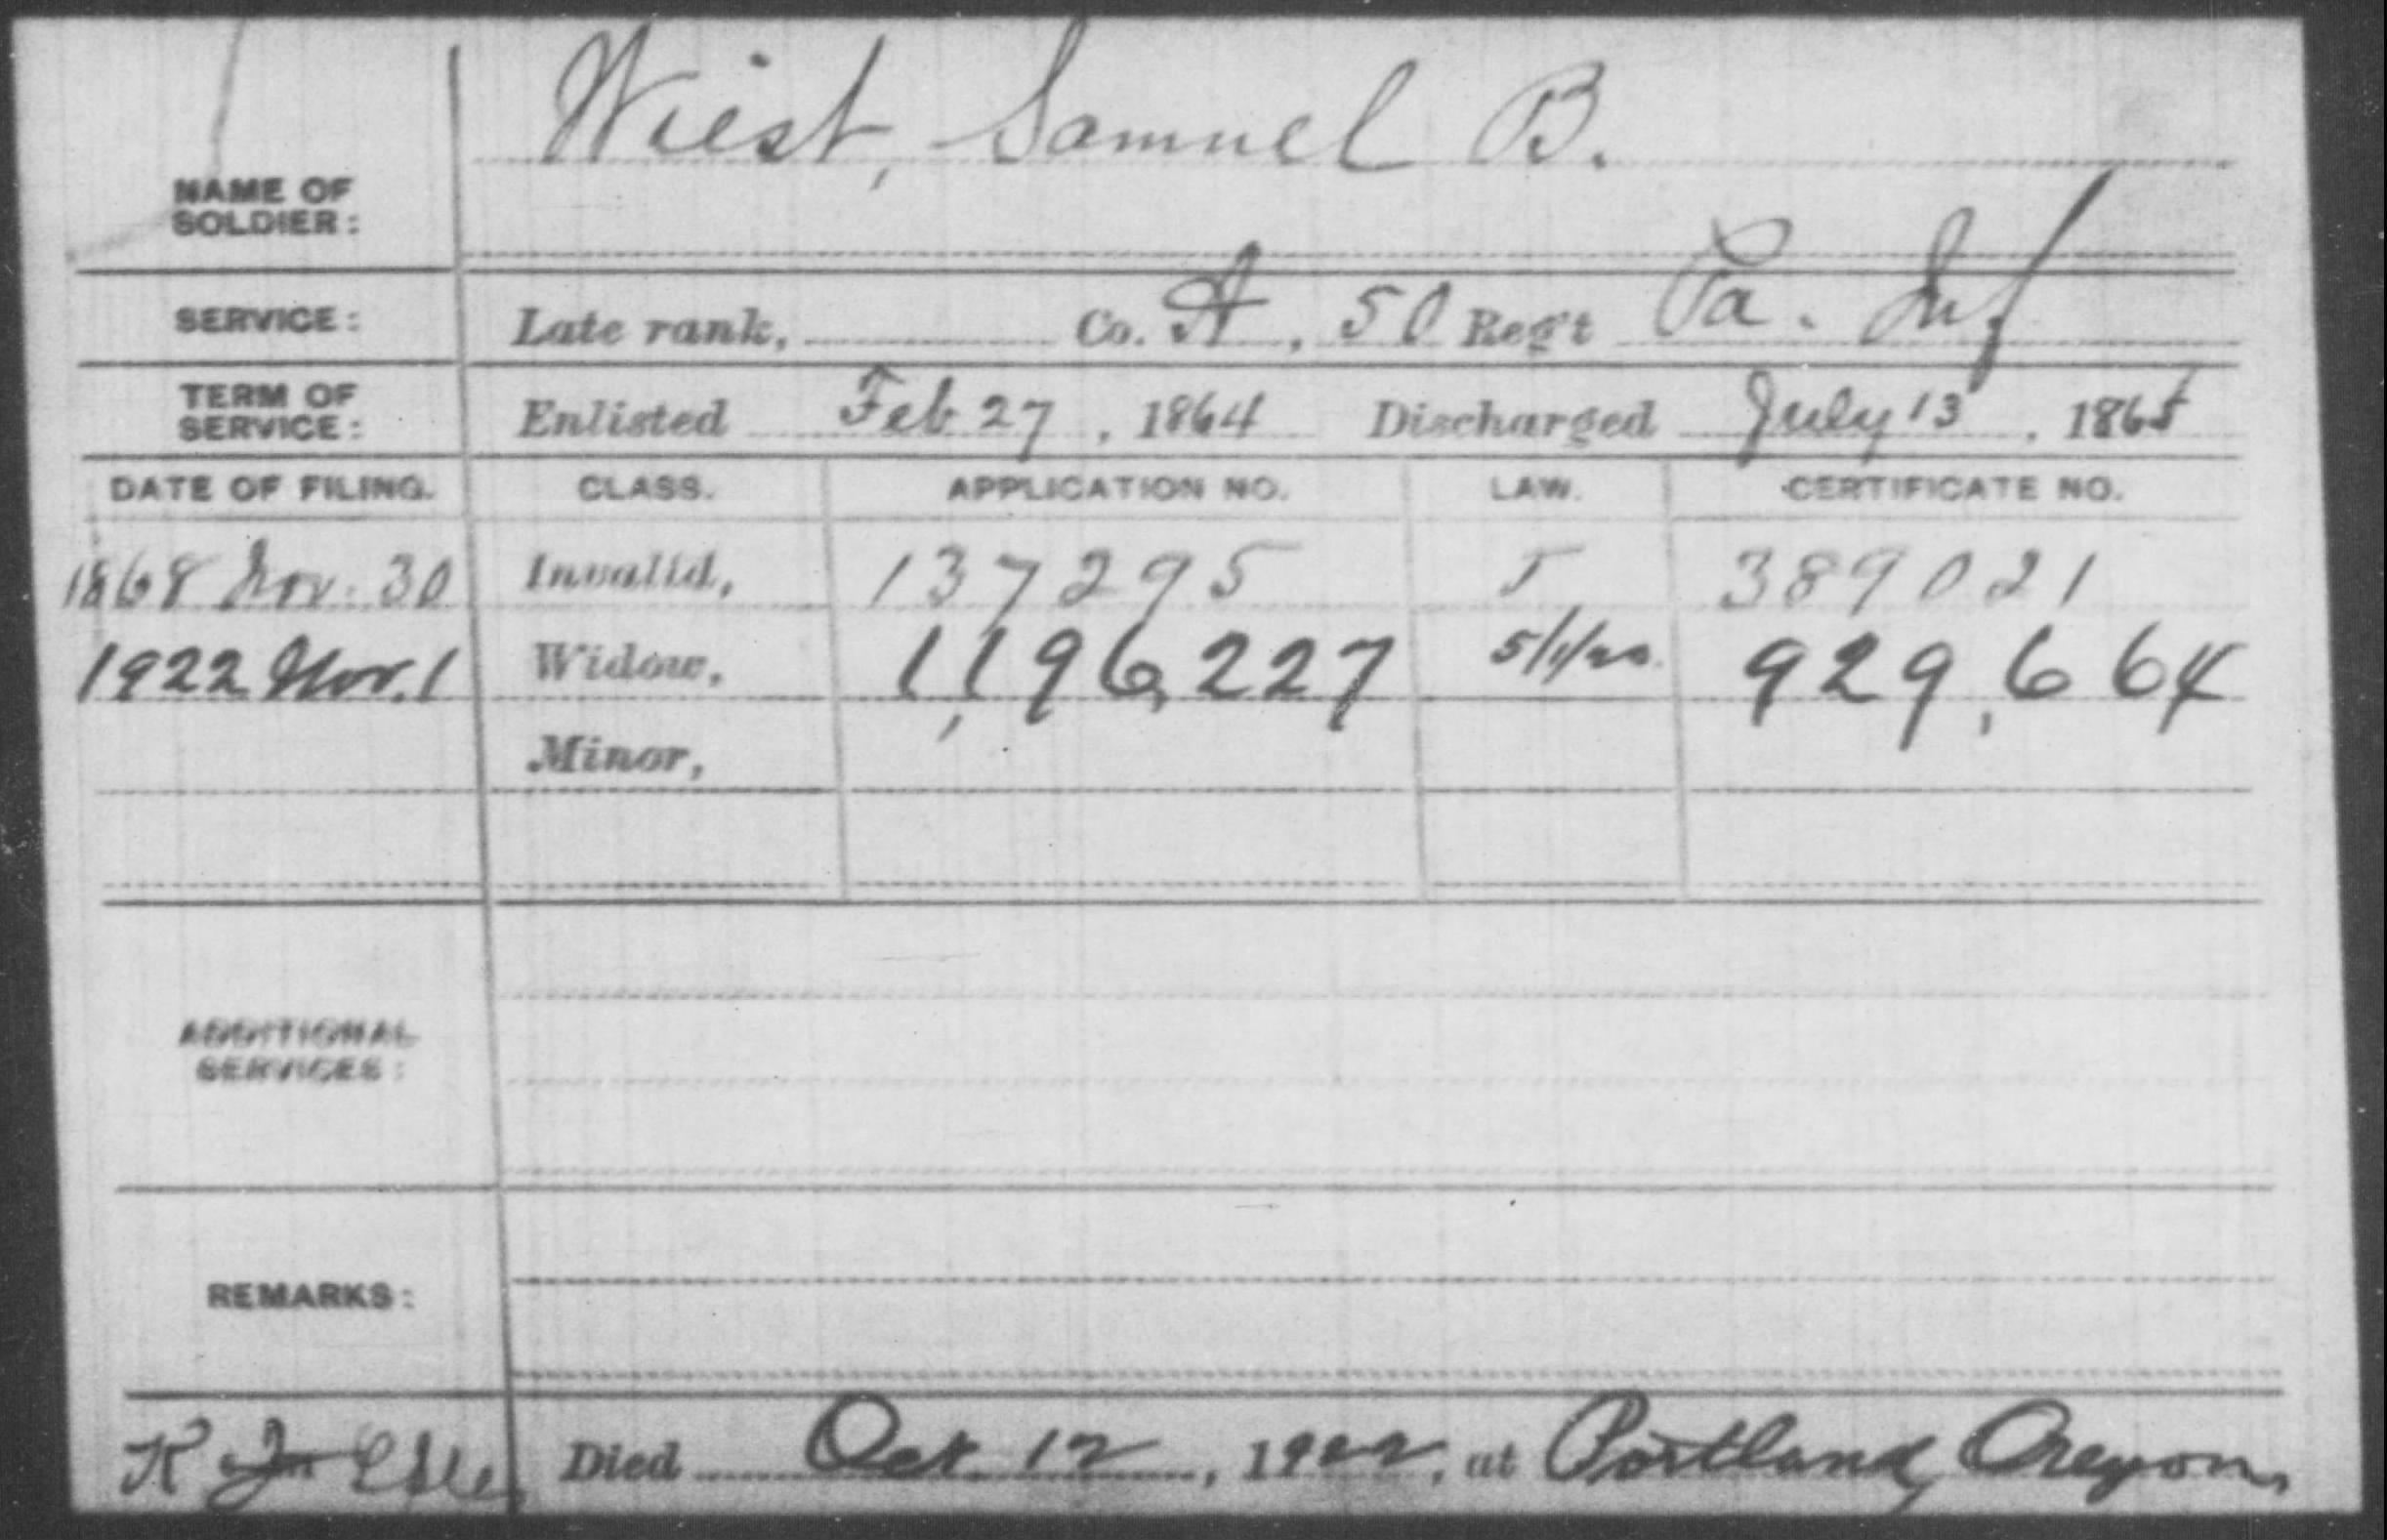 Wiest, Samuel B.
NAME OF
SOLDIER:
SERVICE: Late rank, Co. A, 50 Reg't Pa. Inf
TERM OF
SERVICE: Enlisted Feb 27, 1864 Discharged July 13, 1865
DATE OF FILING. CLASS. APPLICATION NO. LAW. CERTIFICATE NO.
1868 Nov. 30 Invalid, 137295 389021
1922 Nov. 1 Widow, 1,196,227 5/1/20 929,664
Minor,
ADDITIONAL
SERVICES:
REMARKS:
Died Oct. 12, 1922, at Portland, Oregon.